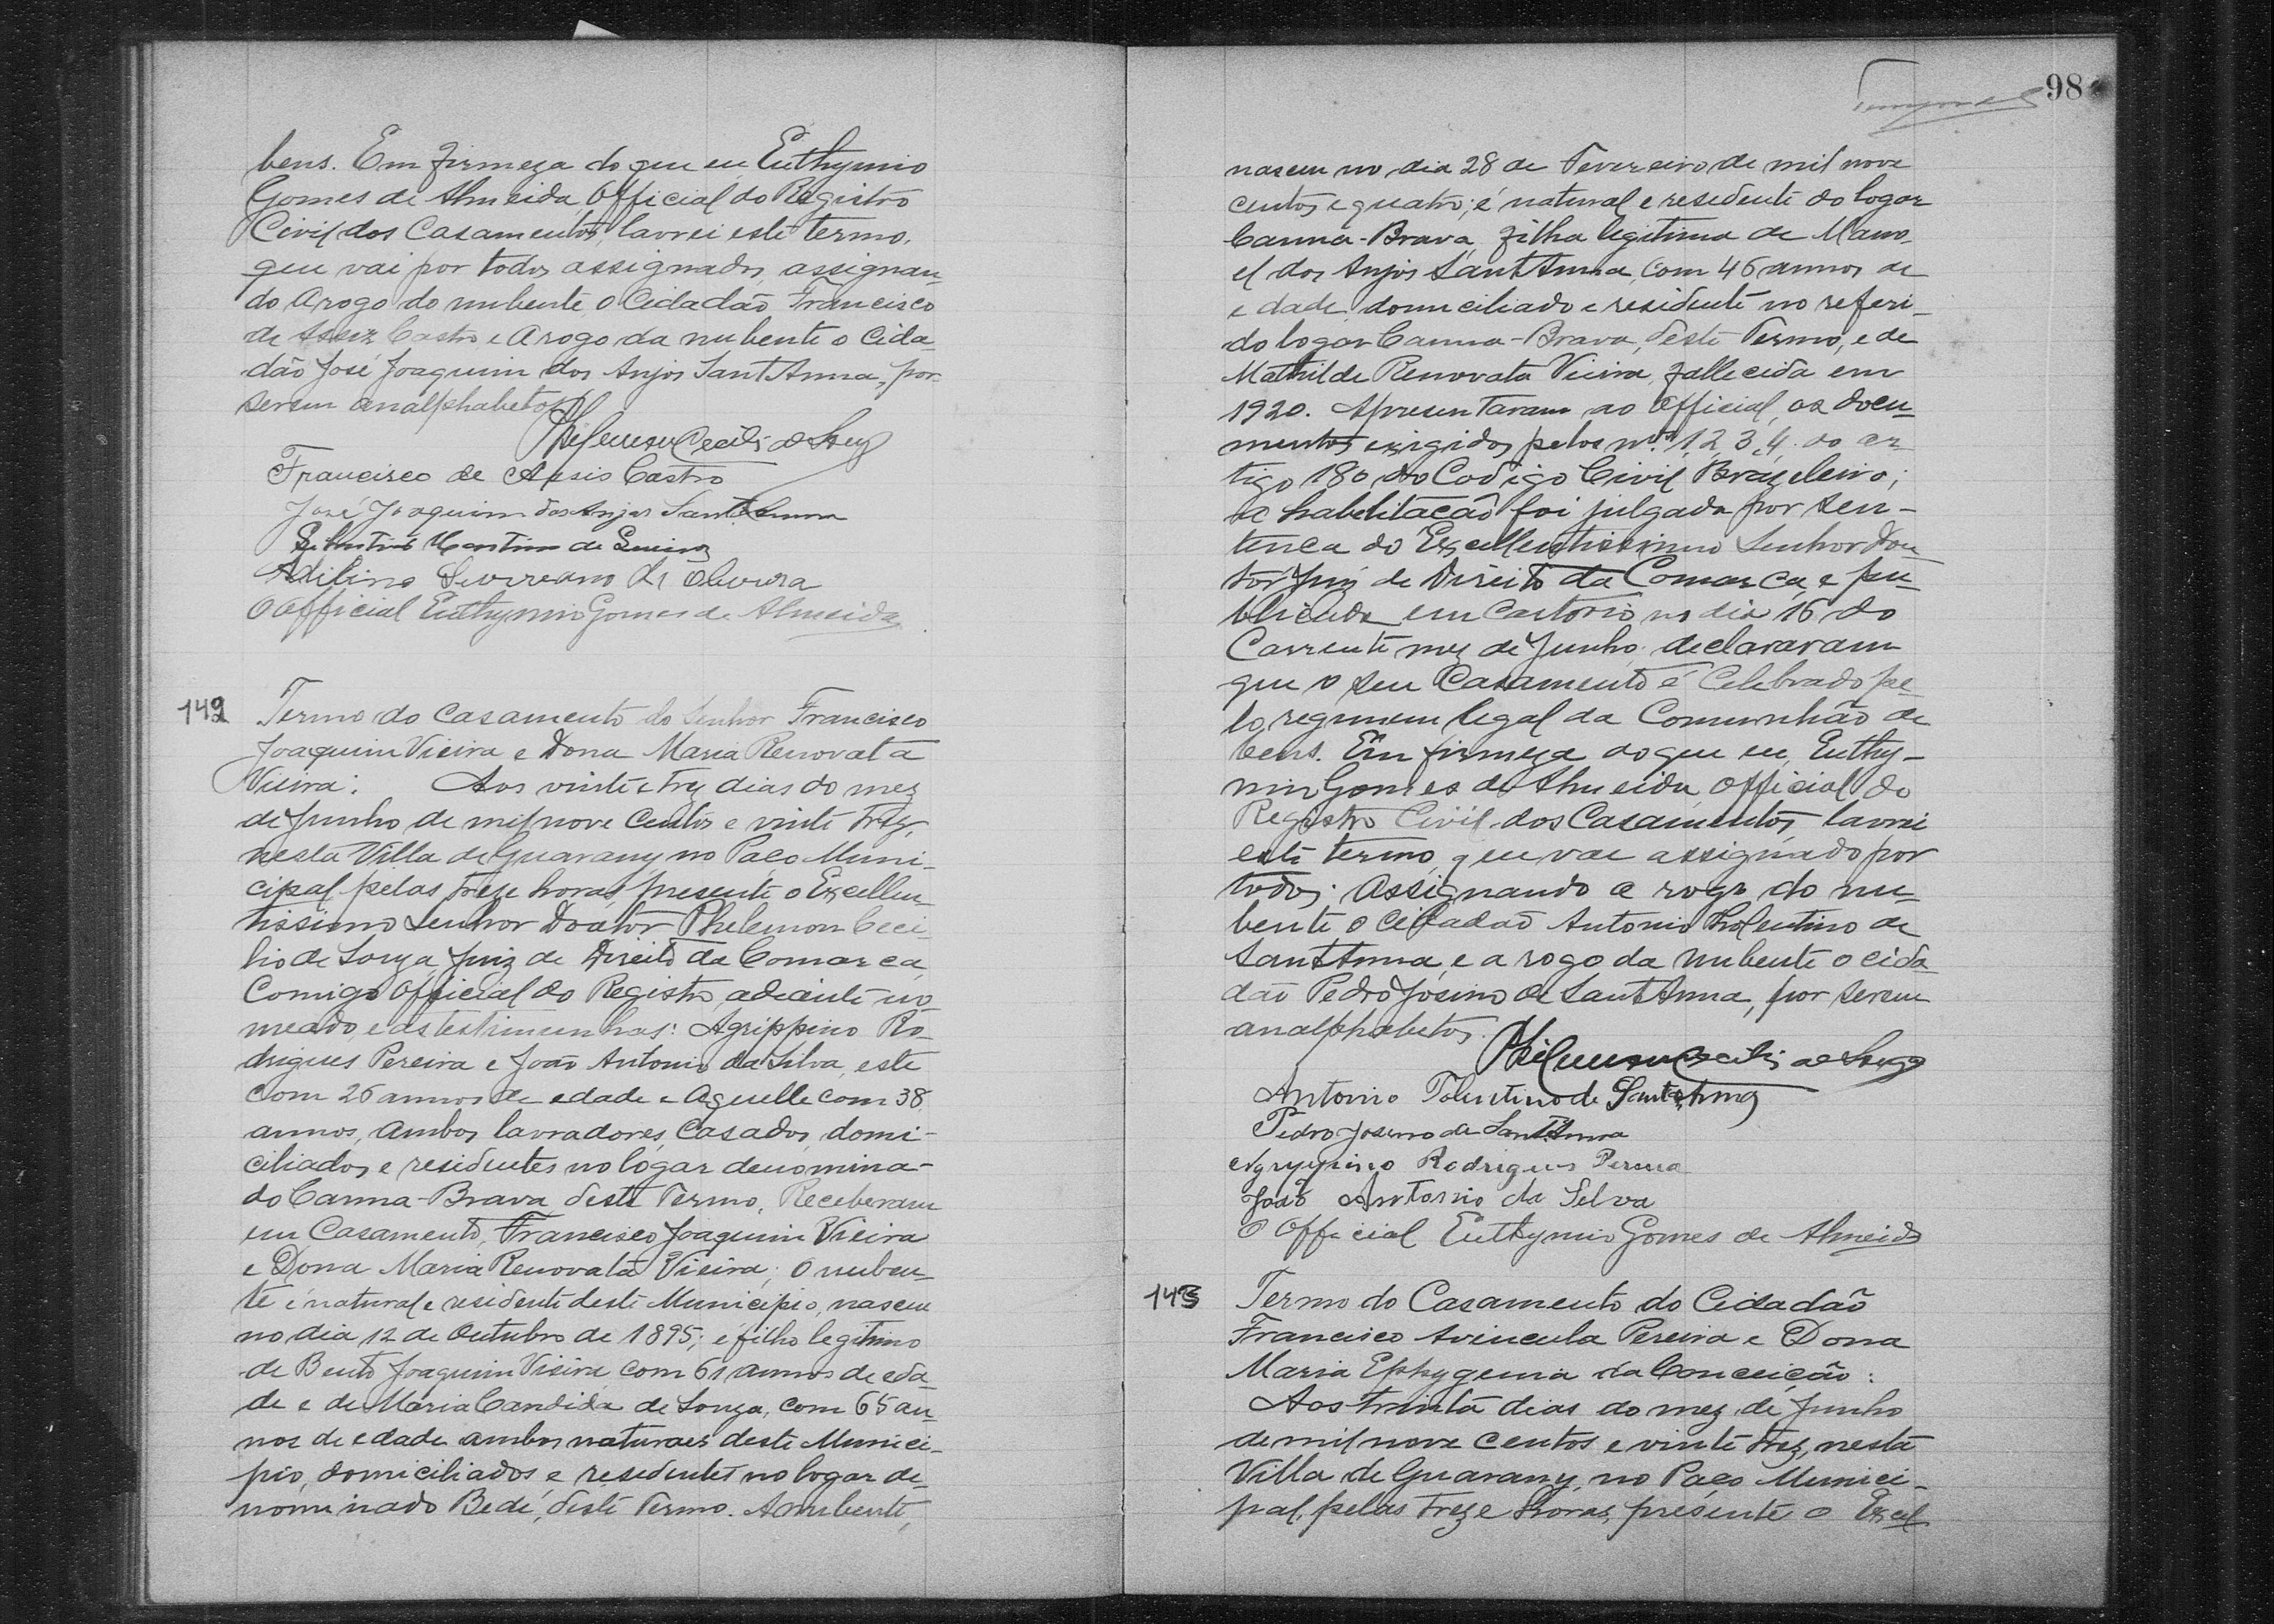 bens. Em firmeza do que eu Euthymio
Gomes de Almeida Official do Registro
Civil dos Casamentos, lavrei este termo,
que vai por todos assignados, assignan-
do Arogo do nubente o Cidadão Francisco
de Assiz Castro e Arogo da nubente o Cida-
dão José Joaquim dos Anjos Sant'Anna, por
serem analphabetos.
Philemon Cecilio de Souza
Francisco de Assis Castro
José Joaquim dos Anjos Sant'Anna
Martins de
de Oliveira
O Official Euthymio Gomes de Almeida
142 Termo do Casamento do Senhor Francisco
Joaquim Vieira e Dona Maria Renovata
Vieira: Aos vinte e trez dias do mez
de Junho de mil nove Centos e vinte trez,
nesta Villa de Guarany, no Paço Muni-
cipal pelas treze horas, presente o Excellen-
tissimo Senhor Doutor Philemon Ceci-
lio de Souza, Juiz de Direito da Comarca,
Comigo Official do Registro adeante no-
meado, e as testimunhas: Agrippino Ro-
drigues Pereira e João Antonio da Silva, este
com 26 annos de edade e Aquelle com 38
annos, Ambos lavradores, Casados, domi-
ciliados e residentes no logar denomina-
do Canna-Brava, deste Termo, Receberam
em Casamento, Francisco Joaquim Vieira
e Dona Maria Renovata Vieira; O nuben-
te é natural e residente deste Municipio, nasceu
no dia 12 de Outubro de 1895; é filho legitimo
de Bento Joaquim Vieira com 61 annos de eda-
de e de Maria Candida de Souza, com 65 an-
nos de edade ambos naturaes deste Munici-
pio, domiciliados e residentes no logar de-
nominado Bedé, deste Termo. A nubente,
98
nasceu no dia 28 de Fevereiro de mil nove
centos e quatro; é natural e residente do logar
Canna-Brava, filha legitima de Mano-
el dos Anjos Sant'Anna, com 46 annos de
edade, domiciliado e residente no referi-
do logar Canna-Brava, deste Termo, e de
Mathilde Renovata Vieira, fallecida em
1920. Apresentaram ao Official, os docu-
mentos exigidos pelos nos. 1, 2, 3, 4. do ar-
tigo 180 do Codigo Civil Brazeleiro;
a habelitacão foi julgada por sen-
tença do Excellentissimo Senhor Dou-
tor Juiz de Direito da Comarca, e pu-
blicada em Cartorio no dia 16 do
Corrente mez de Junho; declararam
que o seu Casamento é Celebrado pe-
lo regimem legal da Comunhão de
bens. Em firmeza do que eu, Euthy-
mio Gomes de Almeida Official do
Registro Civil dos Casamentos, lavrei
este termo que vae assignado por
todos; Assignando a rogo do nu-
bente o Cidadão Antonio Tolentino de
Sant'Anna, e a rogo da nubente o cida-
dão Pedro Josino de Sant'Anna, por serem
analphabetos.
Philemon Cecilio de Souza
Antonio Tolentino de Sant'Anna
Pedro Josino de Sant'Anna
Agryppino Rodrigues Pereira
João Antonio da Selva
O Official Euthymio Gomes de Almeida
143 Termo do Casamento do Cidadão
Francisco Avincula Pereira e Dona
Maria Ephygenia da Conceição:
Aos trinta dias do mez de Junho
de mil nove centos e vinte trez, nesta
Villa de Guarany, no Paço Munici-
pal, pelas treze horas, presente o Excel